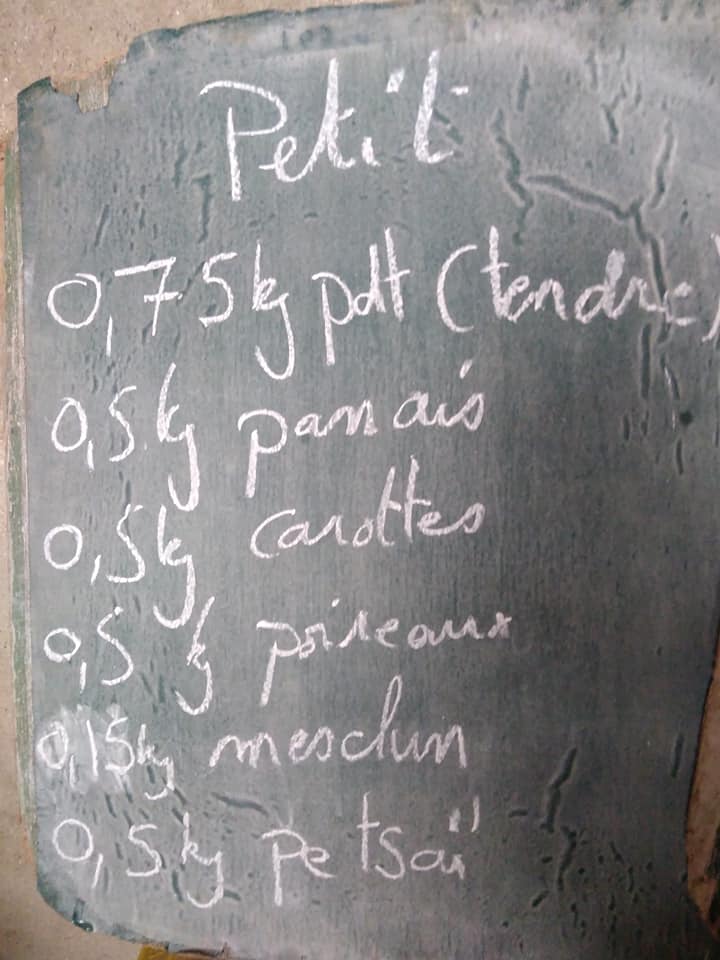 Petit
0,75kg pdt (tendre)
0,5kg panais
0,5kg carottes
0,5 kg poireaux
0,15kg mesclun
0,5kg pe tsaï